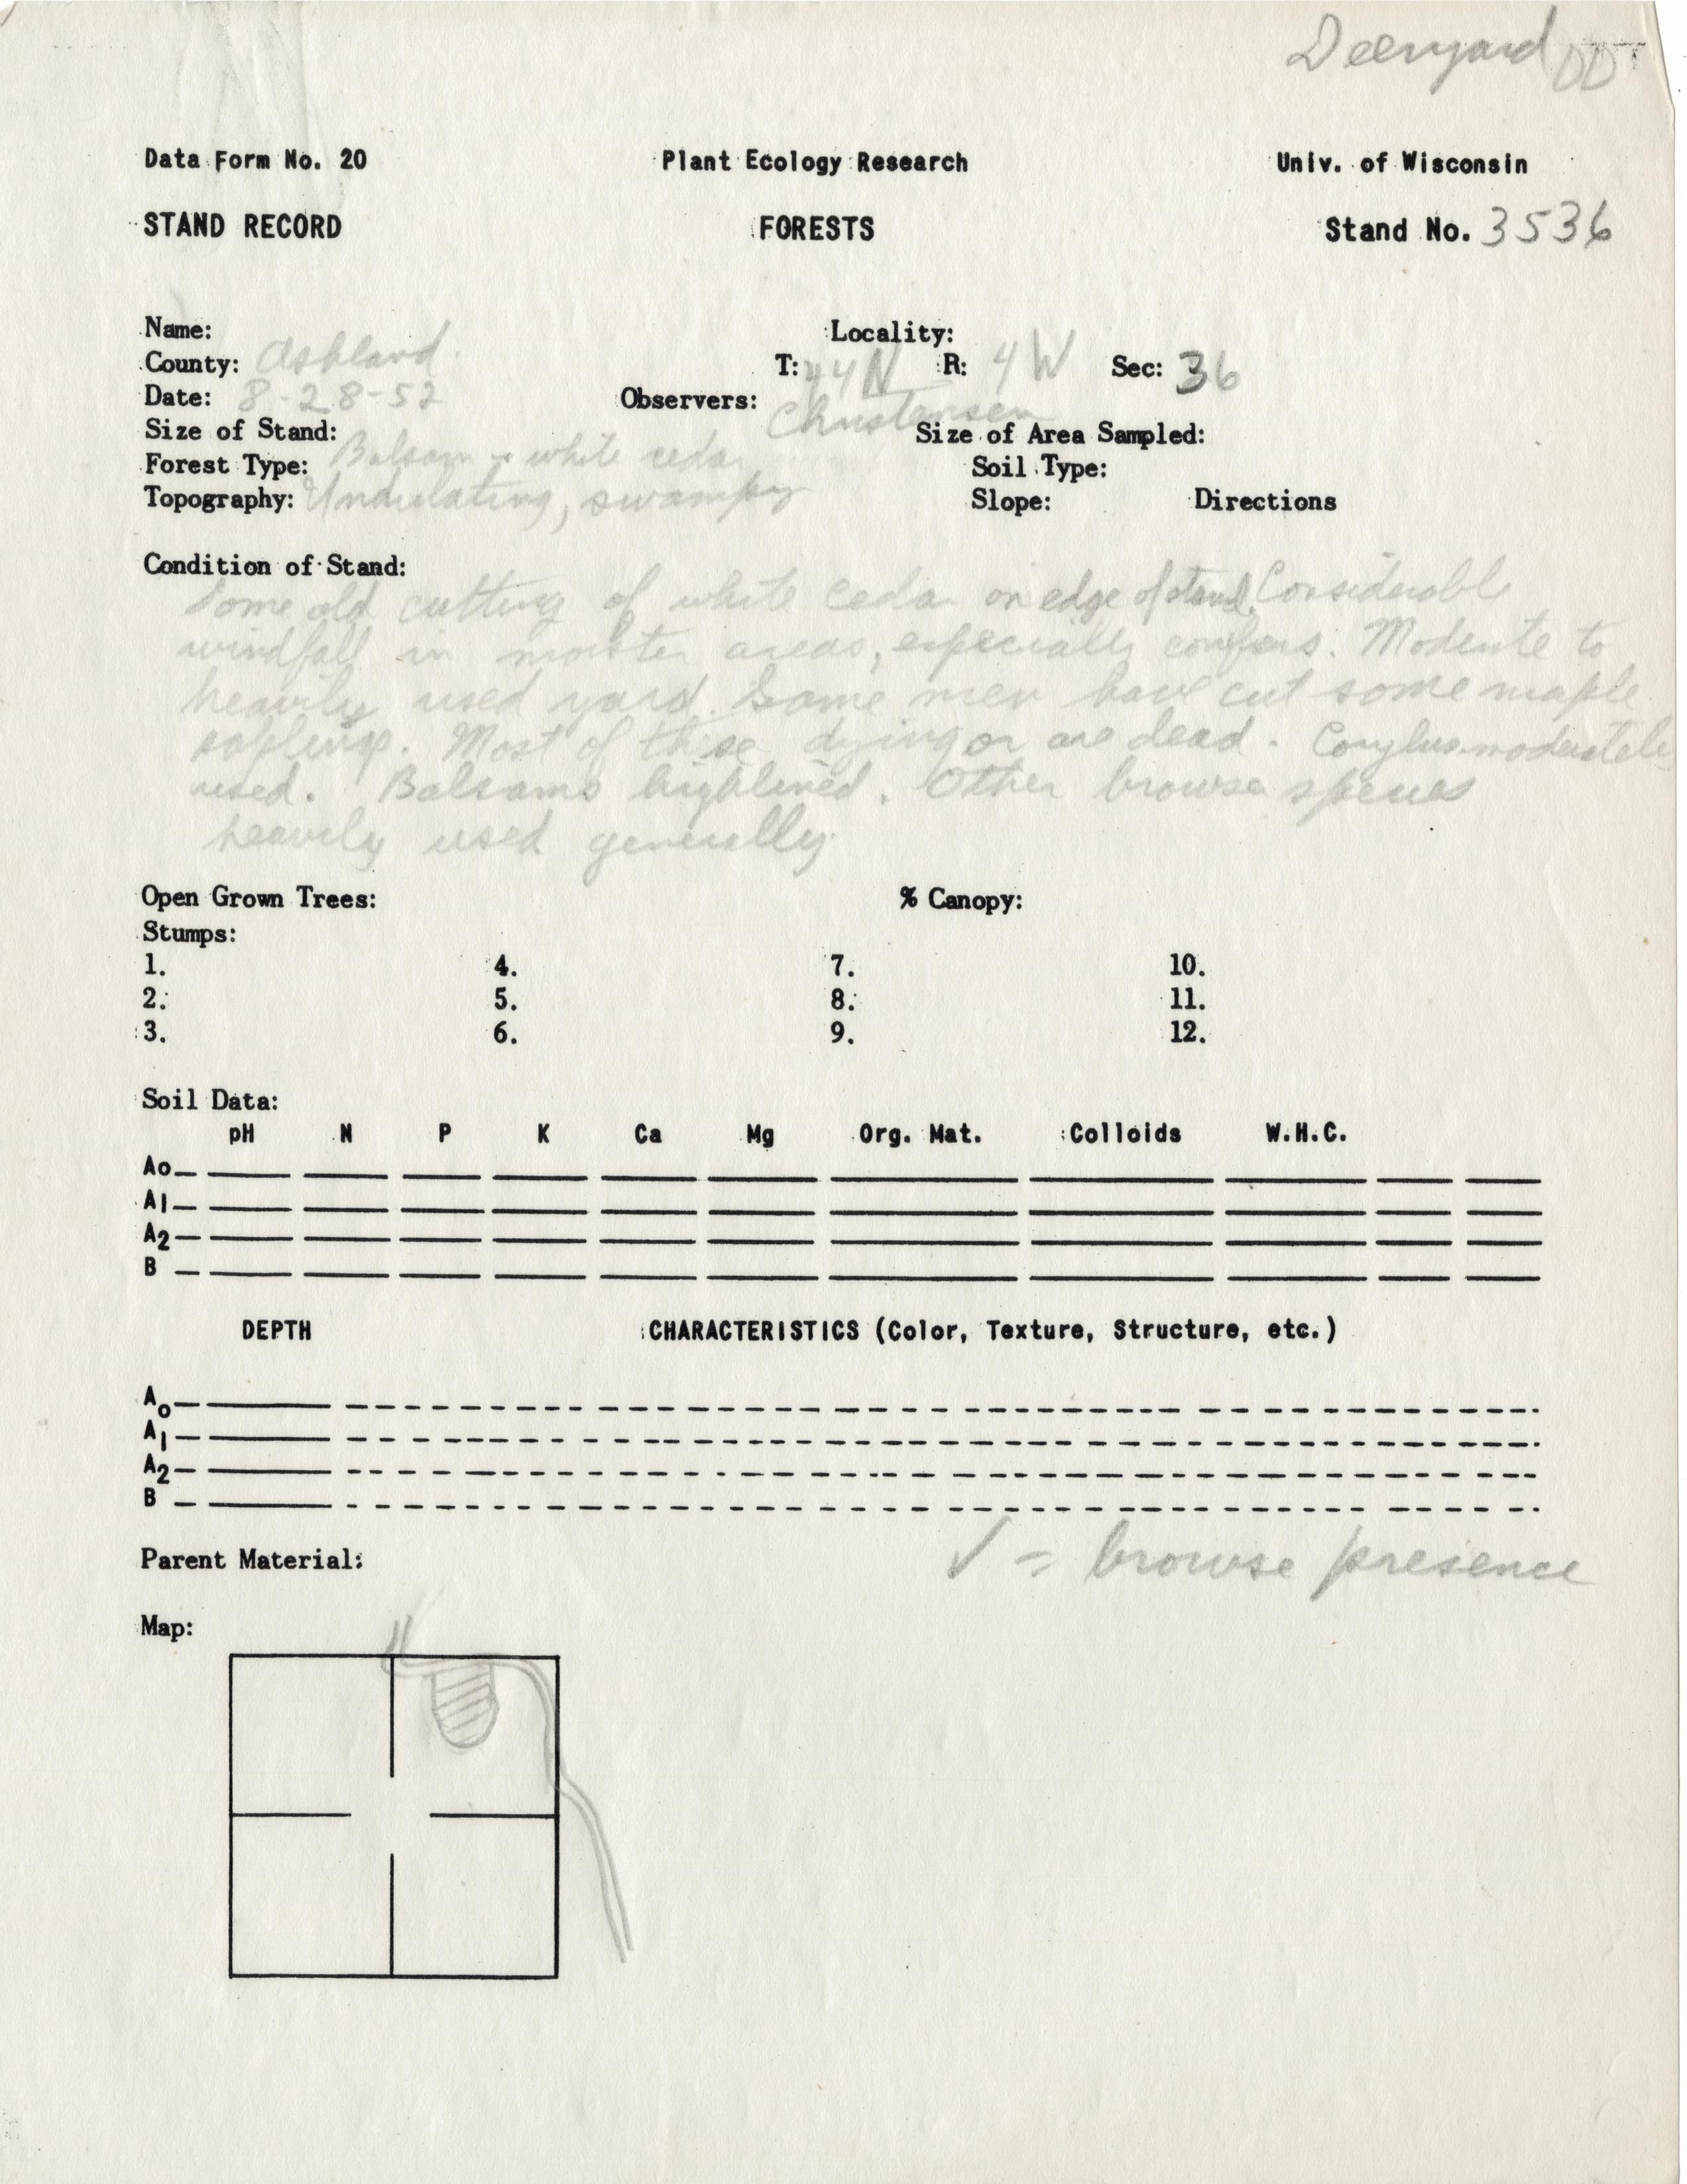 Deeryard DD
Data Form No. 20 Plant Ecology Research Univ. of Wisconsin
STAND RECORD FORESTS Stand No. 3536
Name: Locality:
County: Ashland T: 44N R: 4W Sec: 36
Date: 8-28-52 Observers: Christensen
Size of Stand: Size of Area Sampled:
Forest Type: Balsam - white cedar Soil Type:
Topography: Undulating, swampy Slope: Directions
Condition of Stand:
Some old cutting of white cedar on edge of stand. Considerable
windfall in moister areas, especially conifers. Moderate to
heavily used yard. Some men have cut some maple
saplings. Most of these dying or are dead. Corylus moderately
used. Balsams highlined. Other browse species
heavily used generally.
Open Grown Trees: % Canopy:
Stumps:
1. 4. 7. 10.
2. 5. 8. 11.
3. 6. 9. 12.
Soil Data:
pH N P K Ca Mg Org. Mat. Colloids W.H.C.
Ao
A1
A2
B
DEPTH CHARACTERISTICS (Color, Texture, Structure, etc.)
Ao
A1
A2
B
✓ = browse presence
Parent Material:
Map: